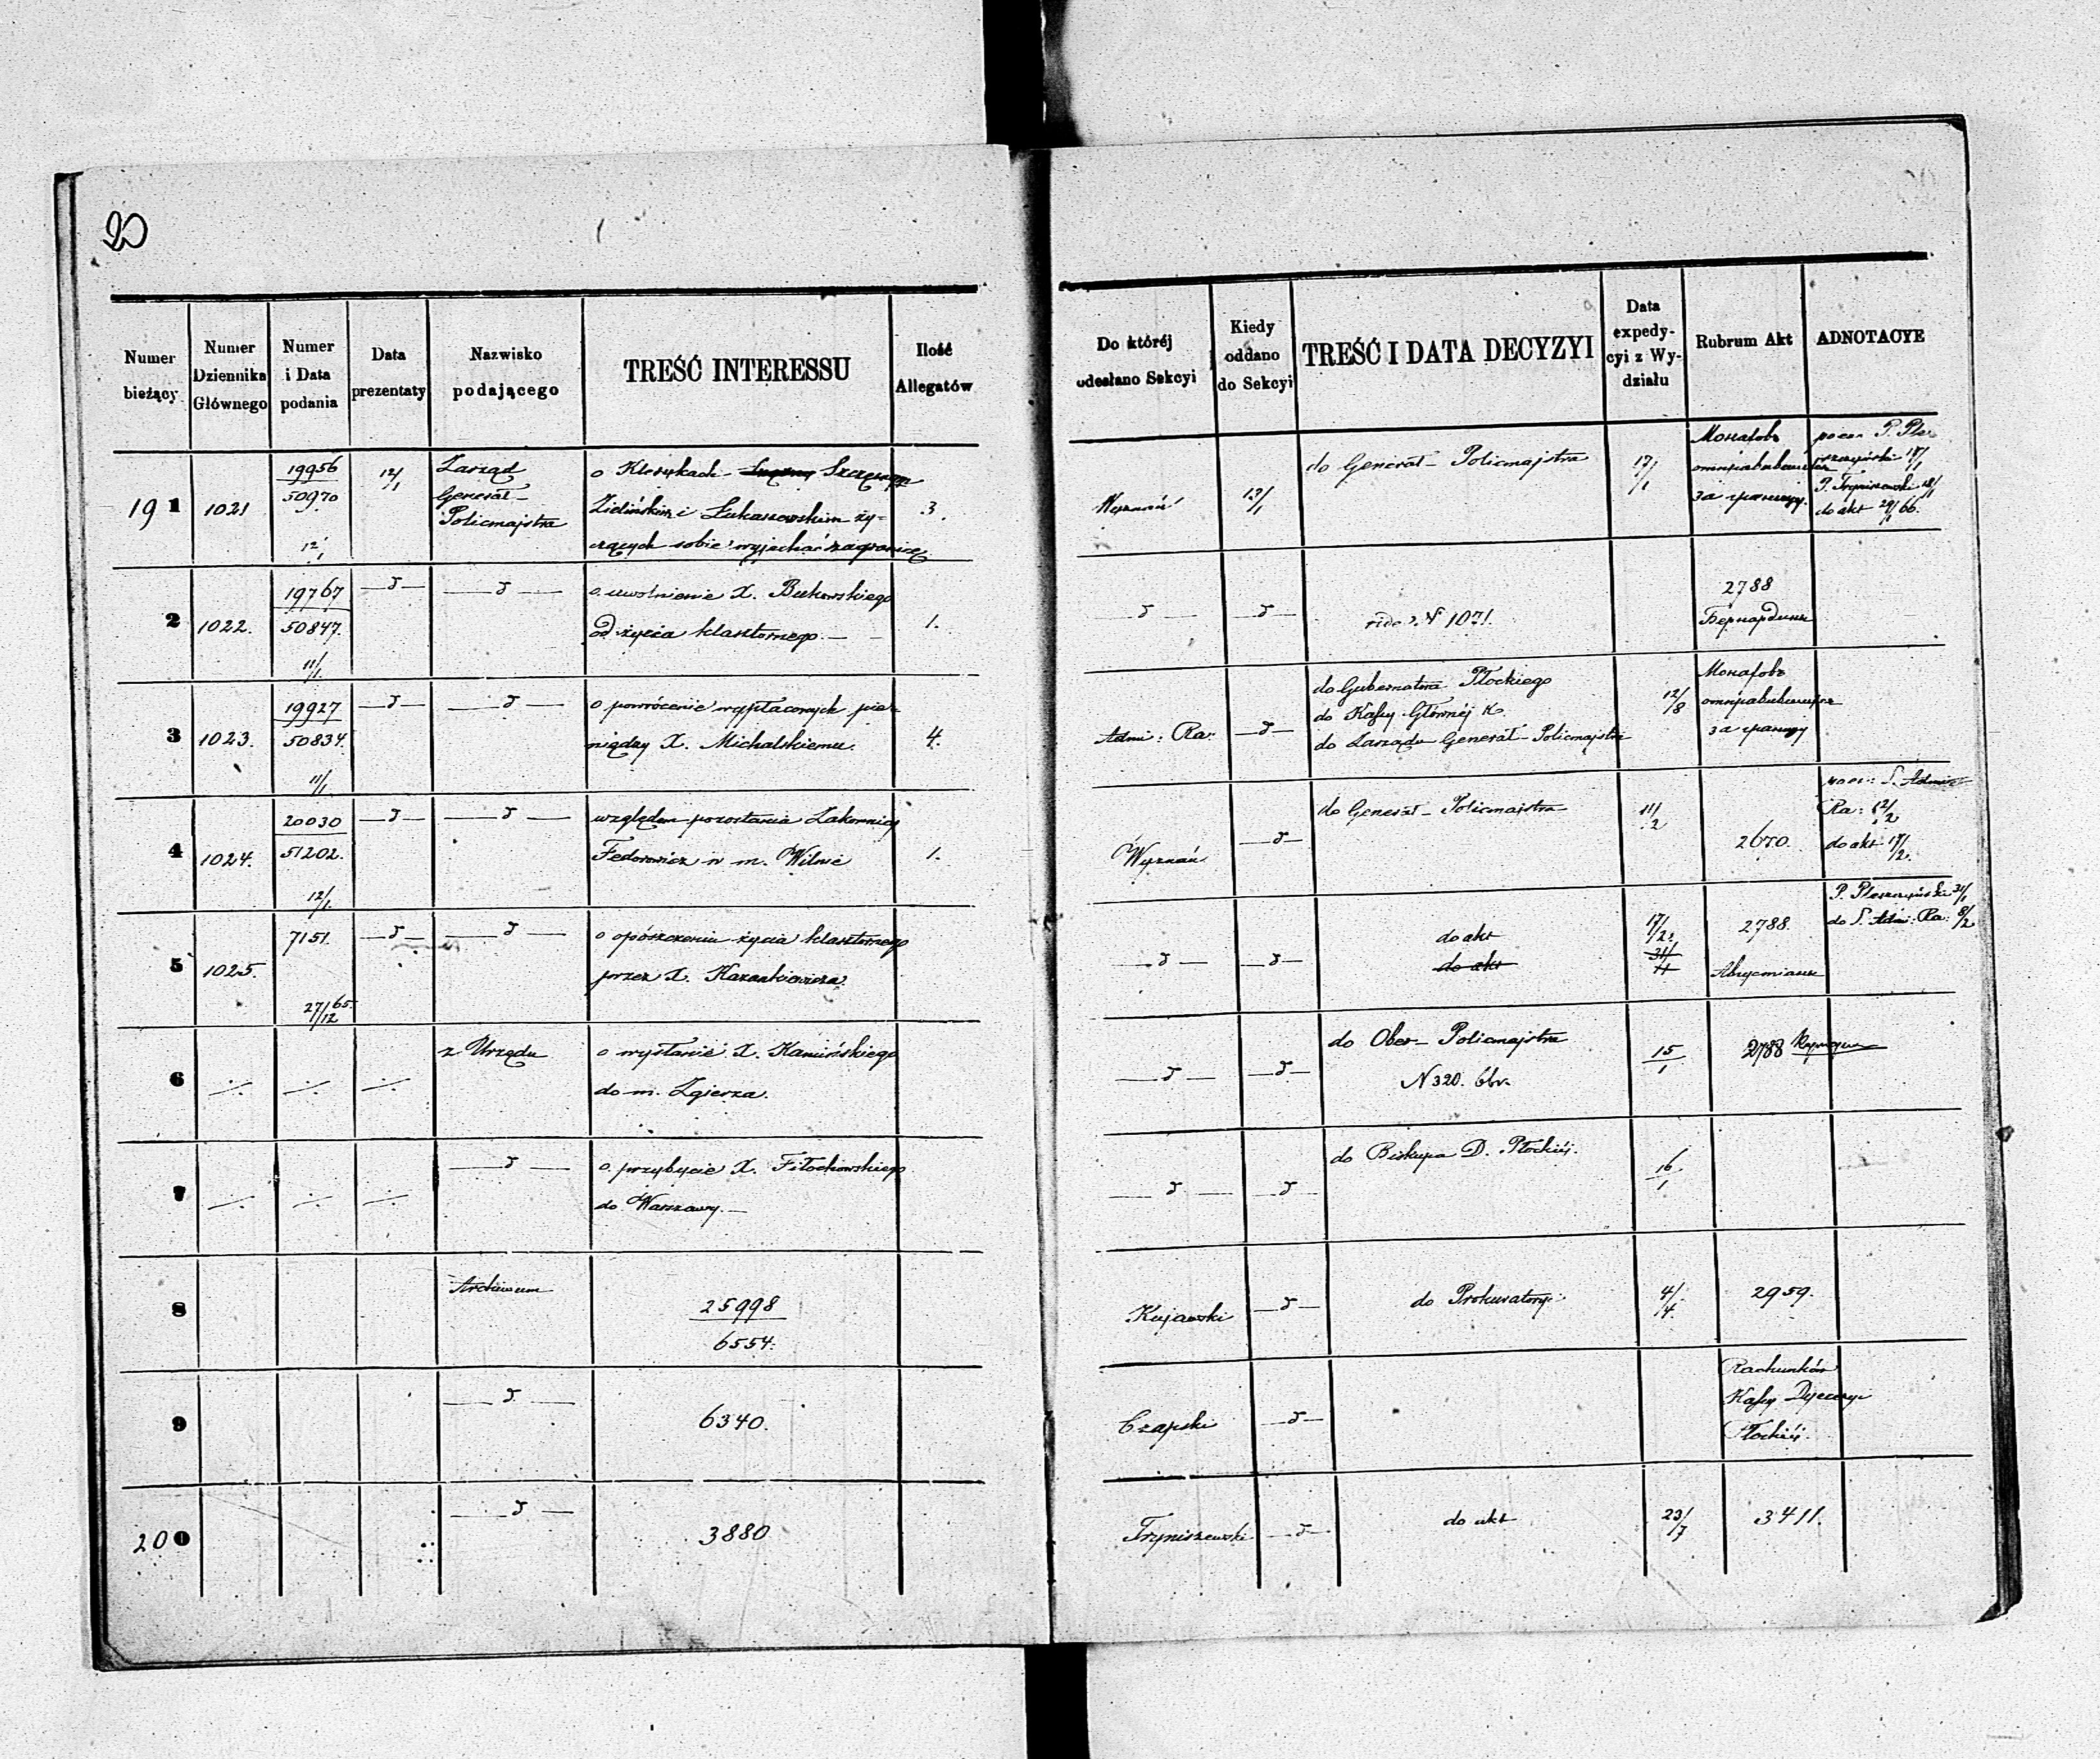 20
Numer bieżący
Numer Dziennika Głównego
Numer i Data podania
Data prezentaty
Nazwisko podającego
TREŚĆ INTERESSU
Ilość Allegatów
Do któréj odesłano Sekcyi
Kiedy oddano do Sekcyi
TREŚĆ I DATA DECYZYI
Data expedycyi z Wydziału
Rubrum Akt
ADNOTACYE
19 1
1021
19956
50970
12/1
12/1
Zarząd
Generał-
Policmajstra
o Klerykach Szczęsnym
Zielińskim i Łukaszewskim ży-
czących sobie wyjechać zagranicę
3.
Wyznań
13/1
do Generał-Policmajstra
17/1
Монаховъ
за границу
do akt 29/1 66.
2
1022.
19767
50847.
11/1
—d—
—d—
o uwolnienie X. Bukowskiego
od życia klasztornego.—
1.
—d—
—d—
vide N 1071.
2788
Бернардины
3
1023.
19927
50834.
11/1
—d—
—d—
o powrócenie wypłaconych pie-
niędzy X. Michalskiemu.
4.
Admi: Ra:
—d—
do Gubernatora Płockiego
do Kassy Głównéj K.
do Zarządu Generał-Policmajstra
12/8
Монаховъ
за границу
4
1024.
20030
51202.
12/1
—d—
—d—
względem pozostania Zakonnicy
Fedorowicz w m. Wilnie
1.
Wyznań
—d—
do Generał-Policmajstra
11/2
2650.
Ra: 12/2
do akt 17/2.
5
1025.
7151.
27/12 65.
—d—
—d—
o opószczeniu życia klasztornego
przez X.
—d—
—d—
do akt
do akt
17/2.
31/1
2788.
P. Pleszczyński 31/1
do S. Admi: Ra: 8/2
6
÷
÷
÷
z Urzędu
o wysłanie X. Kamińskiego
do m. Zgierza.
—d—
—d—
do Ober-Policmajstra
N 320. bbr.
15/1
2788
7
÷
÷
÷
—d—
o przybycie X. Fiłochowskiego
do Warszawy.—
—d—
—d—
do Biskupa D. Płockiéj.
16/1
8
Archiwum
25998
6554.
Kujawski
—d—
do Prokuratoryi
4/4.
2959.
9
—d—
6340.
Czapski
—d—
Rachunków
Kassy Dyecezyi
Płockiéj.
20 0
—d—
3880
Tryniszewski
—d—
do akt
23/7
3411.